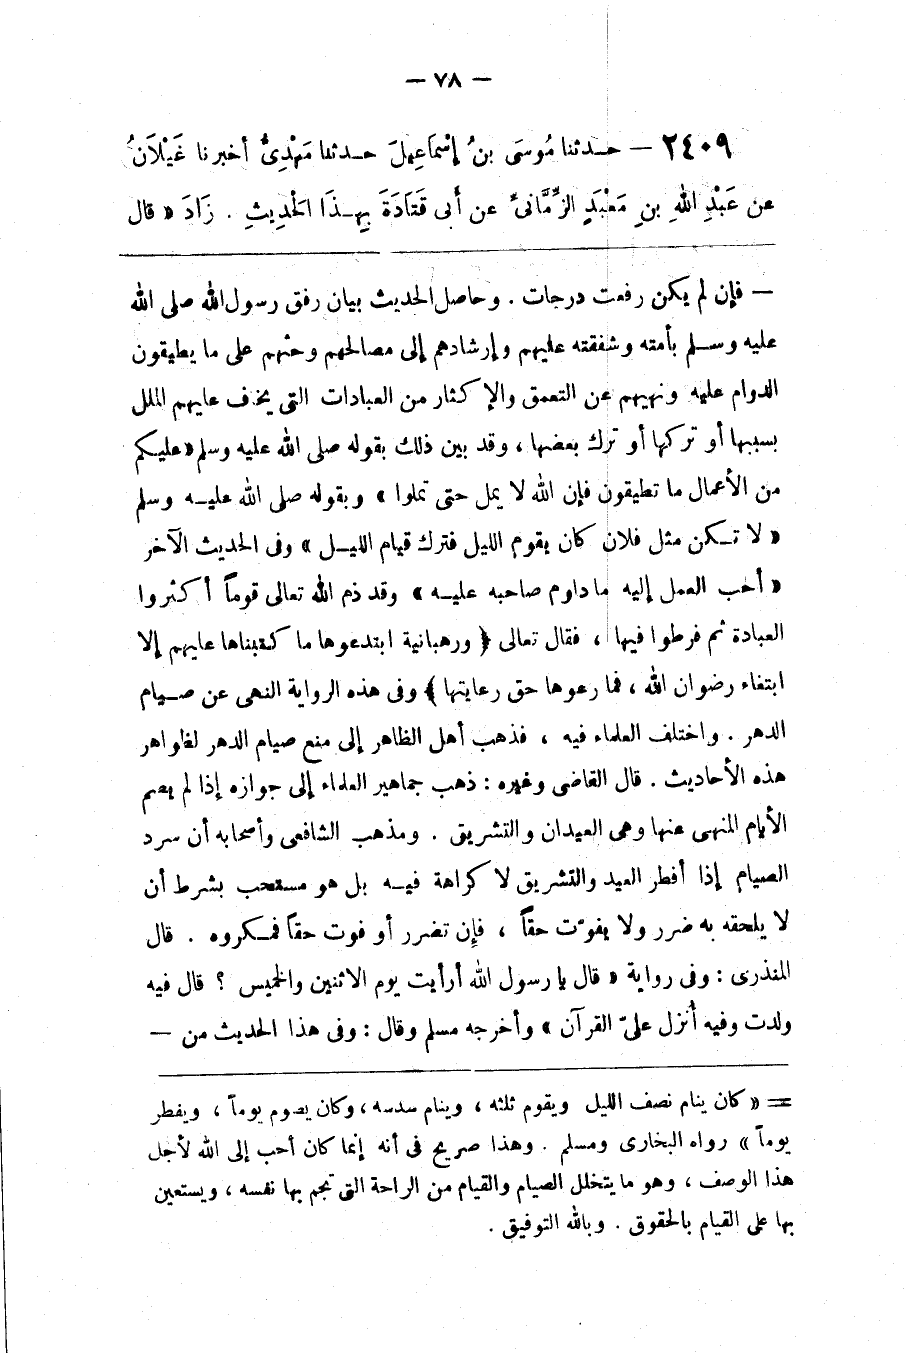 — ٧٨ —
٢٤٠٩ — حدثنا مُوسَى بنُ إسْمَاعِيلَ حدثنا مَهْدِيٌّ أخبرنا غَيْلَانُ
عن عَبْدِ اللهِ بنِ مَعْبَدٍ الزِّمَّانىِّ عن أَبى قَتَادَةَ بِهذَا الحَدِيثِ . زَادَ « قال
— فإن لم يكن رفعت درجات . وحاصل الحديث بيان رفق رسول الله صلى الله
عليه وسلم بأمته وشفقته عليهم وإرشادهم إلى مصالحهم وحثهم على ما يطيقون
الدوام عليه ونهيهم عن التعمق والإكثار من العبادات التى يخاف عليهم الملل
بسببها أو تركها أو ترك بعضها ، وقد بين ذلك بقوله صلى الله عليه وسلم « عليكم
من الأعمال ما تطيقون فإن الله لا يمل حتى تملوا » وبقوله صلى الله عليه وسلم
« لا تكن مثل فلان كان يقوم الليل فترك قيام الليل » وفى الحديث الآخر
« أحب العمل إليه ما داوم صاحبه عليه » وقد ذم الله تعالى قوماً أكثروا
العبادة ثم فرطوا فيها ، فقال تعالى ﴿ ورهبانية ابتدعوها ما كتبناها عليهم إلا
ابتغاء رضوان الله ، فما رعوها حق رعايتها ﴾ وفى هذه الرواية النهى عن صيام
الدهر . واختلف العلماء فيه ، فذهب أهل الظاهر إلى منع صيام الدهر لظواهر
هذه الأحاديث . قال القاضى وغيره : ذهب جماهير العلماء إلى جوازه إذا لم يصم
الأيام المنهى عنها وهى العيدان والتشريق . ومذهب الشافعى وأصحابه أن سرد
الصيام إذا أفطر العيد والتشريق لا كراهة فيه بل هو مستحب بشرط أن
لا يلحقه به ضرر ولا يفوّت حقاً ، فإن تضرر أو فوت حقاً فمكروه . قال
المنذرى : وفى رواية « قال يا رسول الله أرأيت يوم الاثنين والخميس ؟ قال فيه
ولدت وفيه أُنزل علىّ القرآن » وأخرجه مسلم وقال : وفى هذا الحديث من —
= « كان ينام نصف الليل ويقوم ثلثه ، وينام سدسه ، وكان يصوم يوماً ، ويفطر
يوماً » رواه البخارى ومسلم . وهذا صريح فى أنه إنما كان أحب إلى الله لأجل
هذا الوصف ، وهو ما يتخلل الصيام والقيام من الراحة التى تجم بها نفسه ، ويستعين
بها على القيام بالحقوق . وبالله التوفيق .